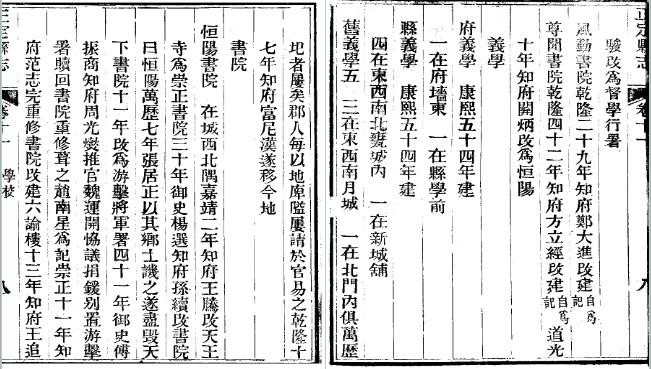 圯者屢矣郡人每以地庳隘屢請於官易之乾隆十
七年知府富尼漢遂移今地
書院
恒陽書院 在城西北隅嘉靖二年知府王騰改天王
寺為崇正書院三十年御史楊選知府孫續改書院
曰恒陽萬歷七年張居正以其鄉士譏之遂盡毀天
下書院十一年改為游擊將軍署四十一年御史傅
振商知府周光燮推官魏運開協議捐鍰別置游擊
署贖回書院重修葺之趙南星為記崇正十一年知
府范志完重修書院改建六諭樓十三年知府王追
正定縣志 卷十一 學校 八
正定縣志 卷十一 八
駿改為督學行署
風動書院乾隆二十九年知府鄭大進改建自為記
尊聞書院乾隆四十二年知府方立經改建自為記 道光
十年知府開炳改為恒陽
義學
府義學 康熙五十四年建
一在府墻東 一在縣學前
縣義學 康熙五十四年建
四在東西南北甕城內 一在新城鋪
舊義學五 三在東西南月城 一在北門內俱萬歷